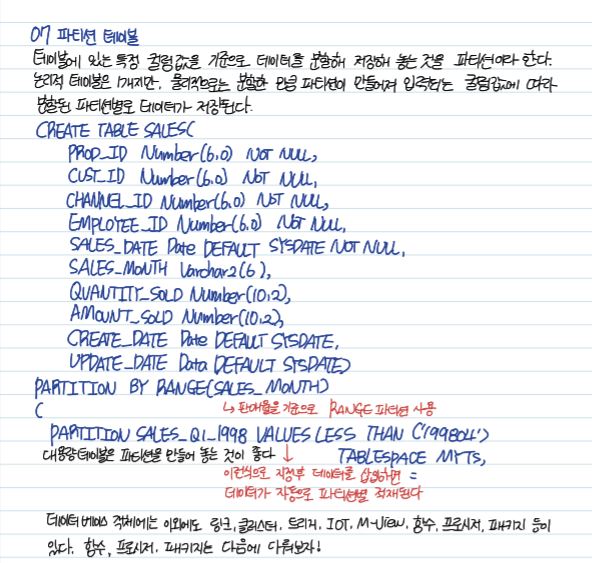 07 파티션 테이블
테이블에 있는 특정 컬럼값을 기준으로 데이터를 분할해 저장해 놓는 것을 파티션이라 한다.
논리적 테이블은 1개지만, 물리적으로는 분할한 만큼 파티션이 만들어져 입력되는 컬럼값에 따라
분할된 파티션별로 데이터가 저장된다.
CREATE TABLE SALES(
PROD_ID Number(6,0) NOT NULL,
CUST_ID Number(6,0) NOT NULL,
CHANNEL_ID Number(6,0) NOT NULL,
EMPLOYEE_ID Number(6,0) NOT NULL,
SALES_DATE Date DEFAULT SYSDATE NOT NULL,
SALES_MONTH Varchar2(6),
QUANTITY_SOLD Number(10,2),
AMOUNT_SOLD Number(10,2),
CREATE_DATE Date DEFAULT SYSDATE,
UPDATE_DATE Data DEFAULT SYSDATE)
PARTITION BY RANGE(SALES_MONTH)
( ↳ 판매월을 기준으로 RANGE 파티션 사용
PARTITION SALES_Q1_1998 VALUES LESS THAN ('199804')
대용량 테이블은 파티션을 만들어 놓는 것이 좋다 ↓ TABLESPACE MYTS,
이런식으로 지정후 데이터를 삽입하면 :
데이터가 자동으로 파티션별 적재된다
데이터베이스 객체에는 이외에도 링크, 클러스터, 트리거, IOT, M-View, 함수, 프로시저, 패키지 등이
있다. 함수, 프로시저, 패키지는 다음에 다뤄보자!